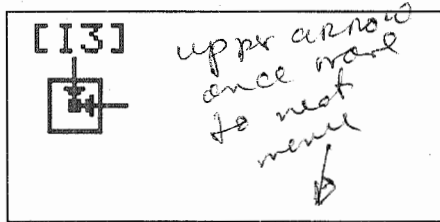 [I3]
upper arrow
once more
to next
menu